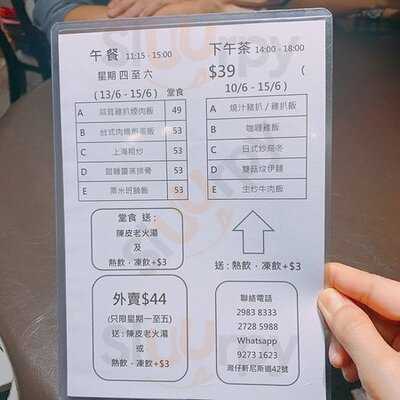 午餐 11:15 - 15:00
星期四至六
(13/6 - 15/6) 堂食
A 蒜茸雞扒燒肉飯 49
B 台式肉燥 飯 53
C 上海粗炒 53
D 豉蒸排骨 53
E 粟米班腩飯 53
堂食 送:
陳皮老火湯
及
熱飲,凍飲+$3
外賣$44
(只限星期一至五)
送:陳皮老火湯
或
熱飲,凍飲+$3
下午茶 14:00 - 18:00
$39 (
10/6 - 15/6)
A 燒汁豬扒 / 雞扒飯
B 咖喱雞飯
C 日式炒烏冬
D 雙菇炆伊麵
E 生炒牛肉飯
送:熱飲,凍飲+$3
聯絡電話
2983 8333
2728 5988
Whatsapp
9273 1623
灣仔軒尼斯道42號